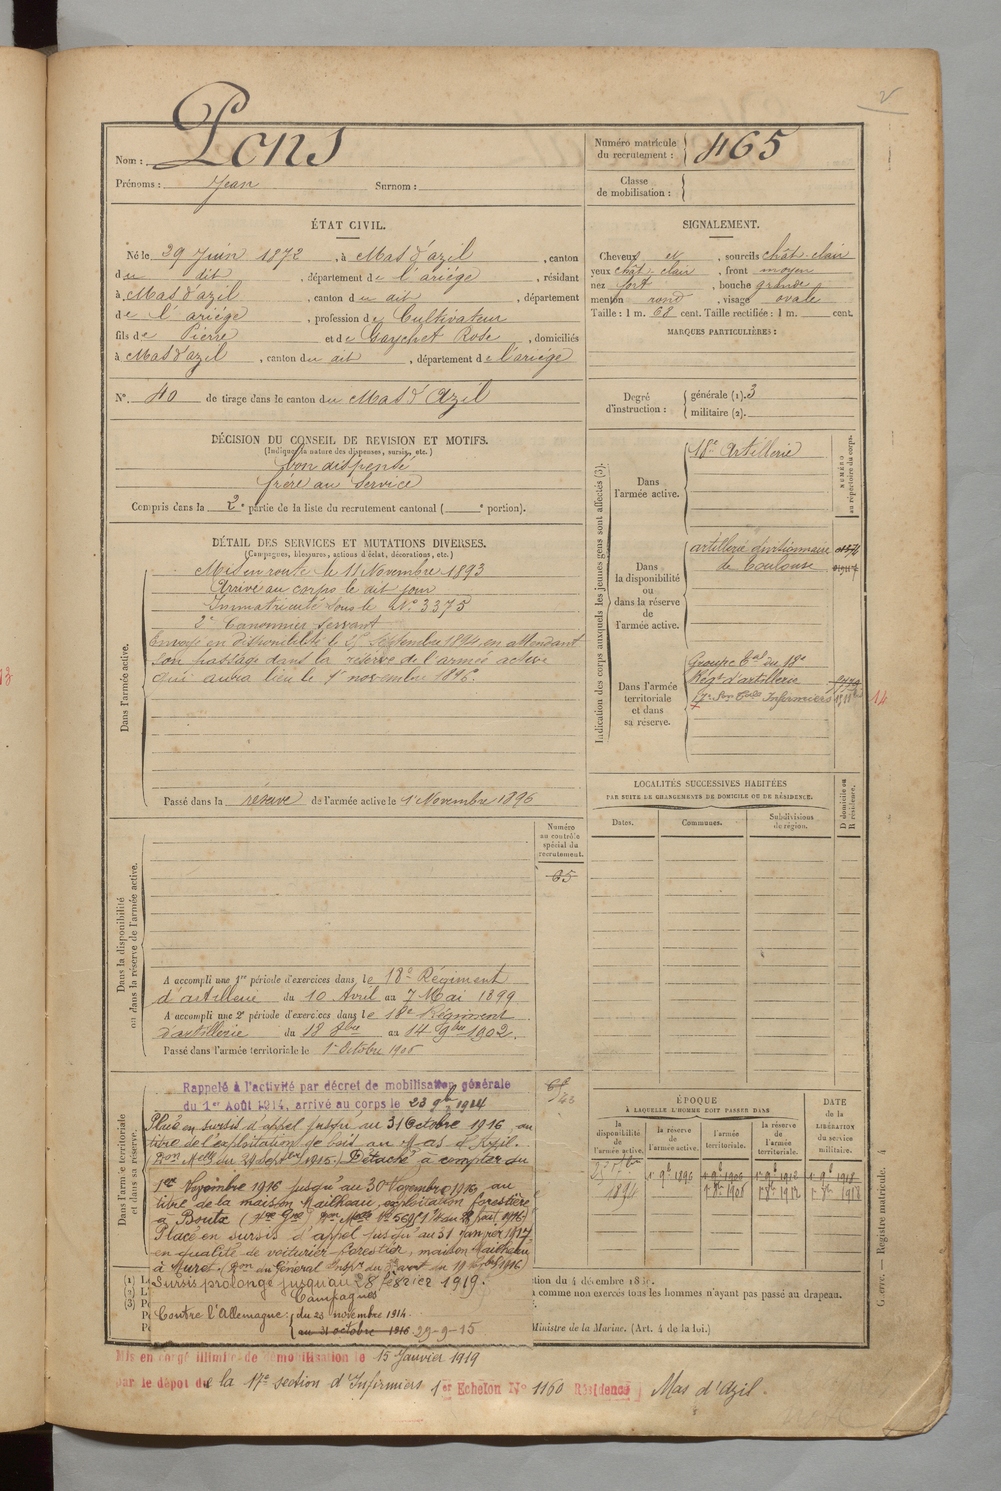 Nom : Pons
Prénoms : Jean Surnom :
Numéro matricule du recrutement : 465
Classe de mobilisation :
ÉTAT CIVIL.
Né le 29 Juin 1872, à Mas d'azil, canton
du dit, département de l'ariége, résidant
à Mas d'azil, canton du dit, département
de l'ariége, profession de Cultivateur
fils de Pierre et de Gaychet Rose, domiciliés
à Mas d'azil, canton du dit, département de l'ariége
N° 40 de tirage dans le canton du Mas d'Azil
SIGNALEMENT.
Cheveux et, sourcils chât. clair
yeux chât. clair, front moyen
nez fort, bouche grande
menton rond, visage ovale
Taille : 1 m. 68 cent. Taille rectifiée : 1 m. cent.
MARQUES PARTICULIÈRES :
Degré d'instruction : générale (1). 3
militaire (2).
DÉCISION DU CONSEIL DE REVISION ET MOTIFS.
(Indiquer la nature des dispenses, sursis, etc.)
bon dispensé
frère au service
Compris dans la 2e partie de la liste du recrutement cantonal ( e portion).
DÉTAIL DES SERVICES ET MUTATIONS DIVERSES.
(Campagnes, blessures, actions d'éclat, décorations, etc.)
Dans l'armée active.
Mis en route le 11 Novembre 1893
Arrivé au corps le dit jour
Immatriculé sous le N° 3375
2e Canonnier servant
Envoyé en disponibilité le Septembre 1894 en attendant
son passage dans la réserve de l'armée active
qui aura lieu le 1er novembre 1896.
Passé dans la réserve de l'armée active le 1er Novembre 1896
Indication des corps auxquels les jeunes gens sont affectés (3).
NUMÉRO au répertoire du corps.
Dans l'armée active.
18e Artillerie
Dans la disponibilité ou dans la réserve de l'armée active.
artillerie divisionnaire
de Toulouse
Dans l'armée territoriale et dans sa réserve.
Groupe tal du 18e
Régt d'artillerie
17e Son Infirmiers
14
LOCALITÉS SUCCESSIVES HABITÉES
PAR SUITE DE CHANGEMENTS DE DOMICILE OU DE RÉSIDENCE.
Dates. Communes. Subdivisions de région. D domicile ou R résidence.
Numéro au contrôle spécial du recrutement.
65
Dans la disponibilité ou dans la réserve de l'armée active.
A accompli une 1re période d'exercices dans le 18e Régiment
d'artillerie du 10 Avril au 7 Mai 1899
A accompli une 2e période d'exercices dans le 18e Régiment
d'artillerie du 18 8bre au 14 9bre 1902.
Passé dans l'armée territoriale le 1er Octobre 1906
Dans l'armée territoriale et dans sa réserve.
Rappelé à l'activité par décret de mobilisation générale
du 1er Août 1914, arrivé au corps le 23 9bre 1914
Placé en sursis d'appel jusqu'au 31 Octobre 1916 au
titre de l'exploitation de bois au Mas d'Azil.
Don Melle du 29 Septbre 1915.) Détaché à compter du
1er Novembre 1916 jusqu'au 30 Novembre 1916, au
titre de la maison Mailheau, exploitation forestière
à Boutx (Hte Gne)
Placé en sursis d'appel jusqu'au 31 janvier 1917
en qualité de voiturier forestier, maison Mailheau
à Muret.
Sursis prolongé jusqu'au 28 février 1919.
Campagnes
Contre l'Allemagne : du 23 novembre 1914
au 31 octobre 1916 29-9-15
ÉPOQUE
À LAQUELLE L'HOMME DOIT PASSER DANS
DATE de la LIBÉRATION du service militaire.
la disponibilité de l'armée active. la réserve de l'armée active. l'armée territoriale. la réserve de l'armée territoriale.
1894 1er 9b 1896 1er 9b 1906 1er 9b 1912 1er 9b 1918
1er 8b 1906 1er 8b 1912 1er 8b 1918
comme non exercés tous les hommes n'ayant pas passé au drapeau.
Ministre de la Marine. (Art. 4 de la loi.)
Guerre. — Registre matricule. 4
Mis en congé illimité de démobilisation le 15 Janvier 1919
par le dépôt de la 17e section d'Infirmiers 1er Echelon N° 1160 Résidence Mas d'Azil.